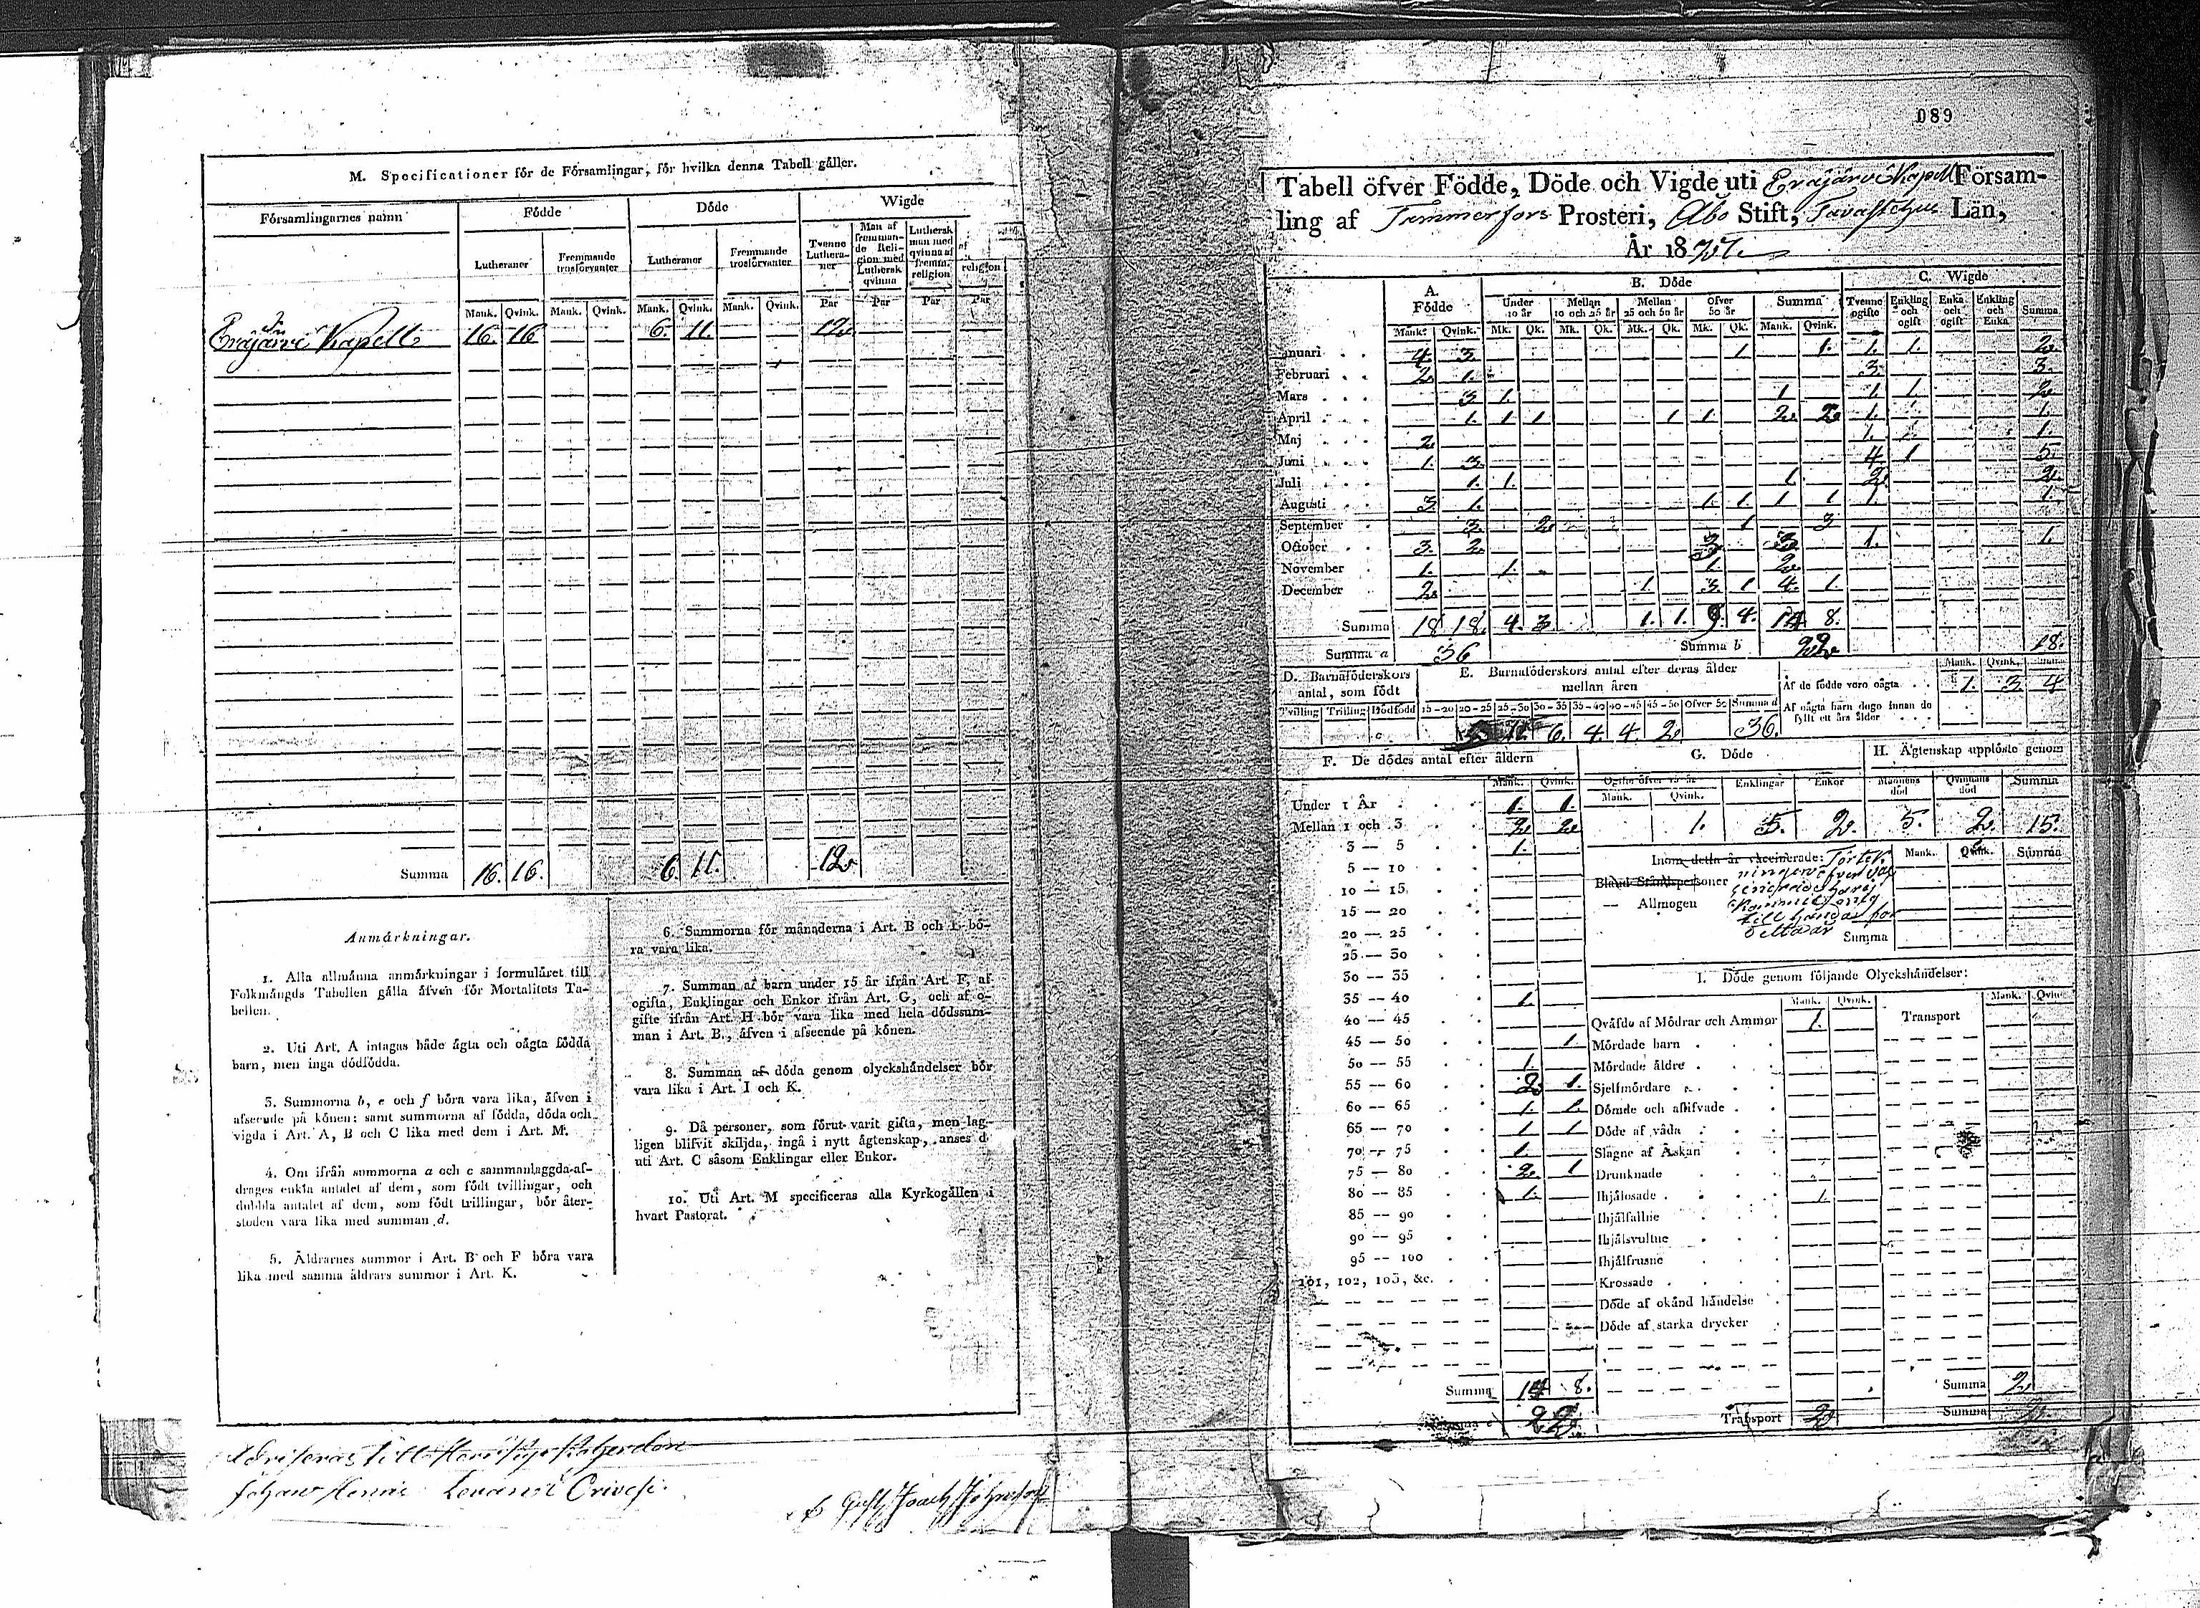 M. Specificationer för de Församlingar, för hvilka denna Tabell gäller.
Församlingarnes namn
Födde
Döde
Wigde
Lutheraner
Fremmande trosförvanter
Lutheraner
Fremmande trosförvanter
Tvenne Lutheraner
Man af fremmande Religion med Luthersk qvinna
Luthersk man med qvinna af fremm. religion
religion
Mank. Qvink. Mank. Qvink. Mank. Qvink. Mank. Qvink. Par Par Par Par
Eräjärvi Kapell 16. 16 6. 11. 12
Summa 16. 16. 6 11. 12
Anmärkningar.
1. Alla allmänna anmärkningar i formuläret till
Folkmängds Tabellen gälla äfven för Mortalitets Ta-
bellen.
2. Uti Art. A intagas både ägta och oägta födda
barn, men inga dödfödda.
3. Summorna b, e och f böra vara lika, äfven i
afseende på könen; samt summorna af födda, döda och
vigda i Art. A, B och C lika med dem i Art. M.
4. Om ifrån summorna a och c sammanlaggda af-
drages enkla antalet af dem, som födt tvillingar, och
dubbla antalet af dem, som födt trillingar, bör åter-
stoden vara lika med summan d.
5. Åldrarnes summor i Art. B och F böra vara
lika med samma åldrars summor i Art. K.
6. Summorna för månaderna i Art. B och L bö-
ra vara lika.
7. Summan af barn under 15 år ifrån Art. F, af
ogifta, Enklingar och Enkor ifrån Art. G, och af o-
gifte ifrån Art. H bör vara lika med hela dödssum-
man i Art. B., äfven i afseende på könen.
8. Summan af döda genom olyckshändelser bör
vara lika i Art. I och K.
9. Då personer, som förut varit gifta, men lag-
ligen blifvit skiljda, ingå i nytt ägtenskap, anses d
uti Art. C såsom Enklingar eller Enkor.
10. Uti Art. M specificeras alla Kyrkogällen i
hvart Pastorat.
089
Tabell öfver Födde, Döde och Vigde uti Eräjärvi Kapell Försam-
ling af Tammerfors Prosteri, Åbo Stift, Tavastehus Län,
År 18
A. Födde
B. Döde
C. Wigde
Under 10 år
Mellan 10 och 25 år
Mellan 25 och 50 år
Öfver 50 år
Summa
Tvenne ogifte
Enkling och ogift
Enka och ogift
Enkling och Enka
Summa
Mank. Qvink. Mk. Qk. Mk. Qk. Mk. Qk. Mk. Qk. Mank. Qvink.
Januari 4 3 1 1. 1. 1. 2
Februari 2 1. 3 3.
Mars 3 1. 1 1. 1 2
April 1. 1 1 1 1 2 2 1. 1.
Maj 2 1. 1
Juni 1. 3 4 1 5.
Juli 1. 1. 1 2 2
Augusti 3 1. 1. 1. 1 1 1. 1.
September 3 2 1 3
October 3. 2 3 3 1. 1
November 1. 1. 1. 2
December 2 1. 3 1 4 1.
Summa 18 18. 4. 3 1. 1. 9 4. 14 8.
Summa a 36
Summa b 22 18.
D. Barnaföderskors antal, som födt
Tvilling Trilling Dödfödd
E. Barnaföderskors antal efter deras ålder mellan åren
15-20 20-25 25-30 30-35 35-40 40-45 45-50 Öfver 50 Summa d
6. 4. 4 2 36.
Mank. Qvink. Summa
Af de födde voro oägta 1. 3 4
Af oägta barn dogo innan de
fyllt ett års ålder
F. De dödes antal efter åldern
Mank. Qvink.
Under 1 År 1. 1.
Mellan 1 och 3 2 2
3 — 5 1.
5 — 10
10 — 15
15 — 20
20 — 25
25 — 30
30 — 35
35 — 40 1.
40 — 45
45 — 50 1.
50 — 55 1.
55 — 60 2 1.
60 — 65 1. 1.
65 — 70 1. 1
70 — 75 1.
75 — 80 2. 1
80 — 85 1.
85 — 90
90 — 95
95 — 100
101, 102, 103, &c.
Summa 14 8.
Summa e 22
G. Döde
Ogifte öfver 15 år
Mank. Qvink. Enklingar Enkor
1. 5. 2.
H. Ägtenskap upplöste genom
Mannens död Qvinnans död Summa
5. 2. 15.
Inom detta år vaccinerade:
Mank. Qvink. Summa
Bland Ståndspersoner
— Allmogen
Summa
I. Döde genom följande Olyckshändelser:
Mank. Qvink.
Qväfde af Mödrar och Ammor 1.
Mördade barn
Mördade äldre
Sjelfmördare
Dömde och aflifvade
Döde af våda
Slagne af Åskan
Drunknade
Ihjälosade 1
Ihjälfallne
Ihjälsvultne
Ihjälfrusne
Krossade
Döde af okänd händelse
Döde af starka drycker
Transport 2
Transport
Mank. Qvink.
Summa 2
Summa 2